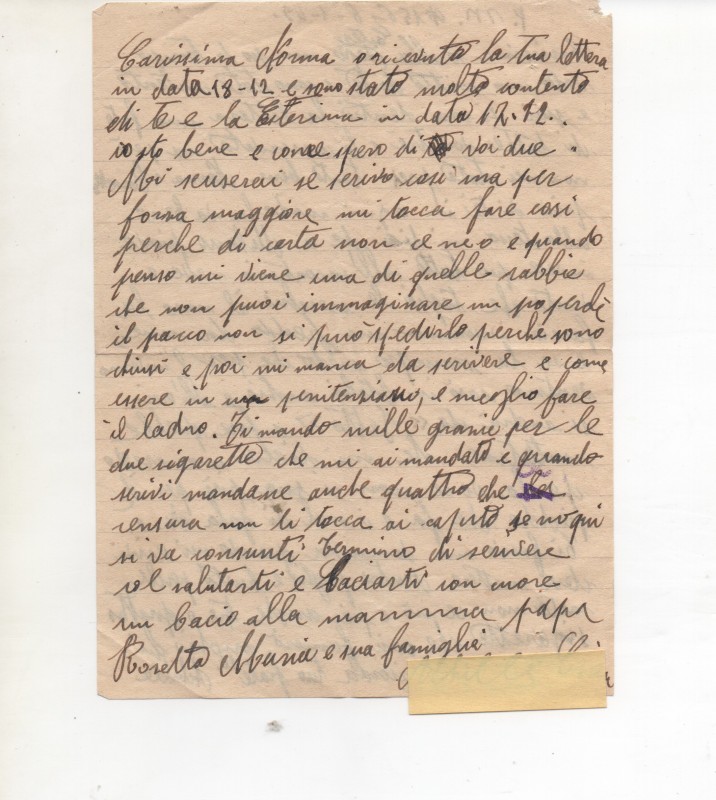 Carissima Norma o ricevuto la tua lettera
in data 18-12 e sono stato molto contento
di te e la Esterina in data 17.12.
io sto bene e come spero di voi due.
Mi scuserai se scrivo cosi ma per
forza maggiore mi tocca fare cosi
perche di carta non ce neo e quando
penso mi viene una di quelle rabbie
che non puoi immaginare un po perche
il pacco non si può spedirlo perche sono
chiusi e poi mi manca da scrivere e come
essere in un penitenziari, e meglio fare
il ladro. Ti mando mille grazie per le
due sigarette che mi ai mandato e quando
scrivi mandane anche quattro che la
censura non li tocca ai caputo se no qui
si va consunti Termino di scrivere
col salutarti e baciarti con more
un bacio alla mammma papa
Rosetta Maria e sua famiglia